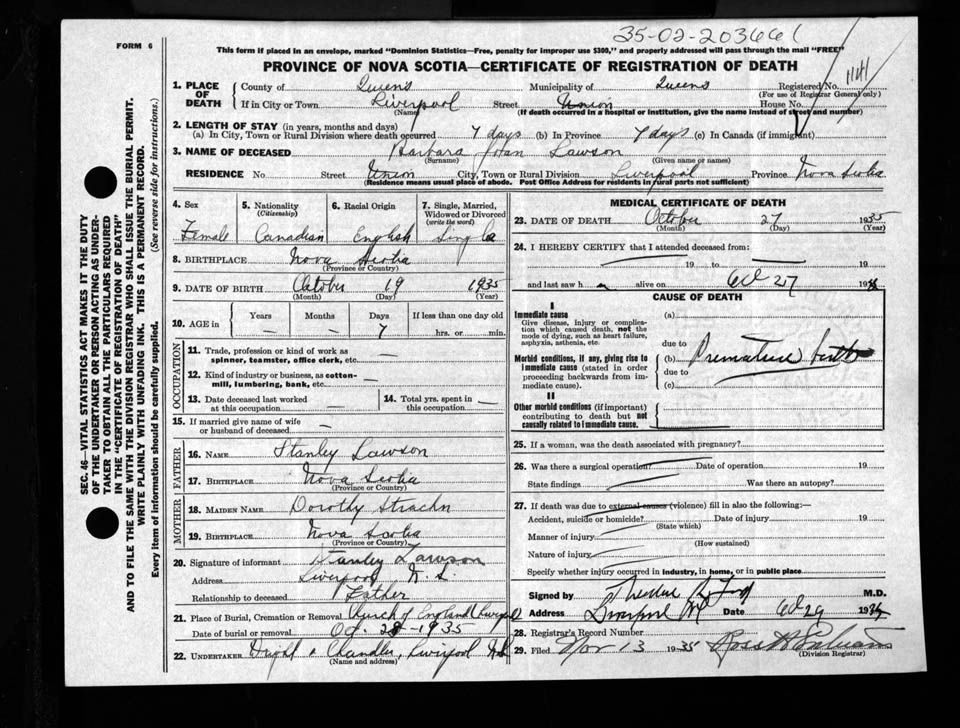 35-02-203661
FORM 6
This form if placed in an envelope, marked "Dominion Statistics—Free, penalty for improper use $300," and properly addressed will pass through the mail "FREE"
PROVINCE OF NOVA SCOTIA—CERTIFICATE OF REGISTRATION OF DEATH
SEC. 46—VITAL STATISTICS ACT MAKES IT THE DUTY
OF THE UNDERTAKER OR PERSON ACTING AS UNDER-
TAKER TO OBTAIN ALL THE PARTICULARS REQUIRED
IN THE "CERTIFICATE OF REGISTRATION OF DEATH"
AND TO FILE THE SAME WITH THE DIVISION REGISTRAR WHO SHALL ISSUE THE BURIAL PERMIT.
WRITE PLAINLY WITH UNFADING INK. THIS IS A PERMANENT RECORD.
Every item of information should be carefully supplied. (See reverse side for instructions.)
1. PLACE OF DEATH County of Queens Municipality of Queens Registered No. 1141
(For use of Registrar General only)
If in City or Town Liverpool Street Union House No.
(Name) (If death occurred in a hospital or institution, give the name instead of street and number)
2. LENGTH OF STAY (in years, months and days)
(a) In City, Town or Rural Division where death occurred 7 days (b) In Province 7 days (c) In Canada (if immigrant)
3. NAME OF DECEASED Barbara Lawson
(Surname) (Given name or names)
RESIDENCE No Street Union City, Town or Rural Division Liverpool Province Nova Scotia
(Residence means usual place of abode. Post Office Address for residents in rural parts not sufficient)
4. Sex 5. Nationality (Citizenship) 6. Racial Origin 7. Single, Married, Widowed or Divorced (write the word)
Female Canadian English Single
8. BIRTHPLACE Nova Scotia
(Province or Country)
9. DATE OF BIRTH October 19 1935
(Month) (Day) (Year)
10. AGE in Years Months Days If less than one day old
— — 7 hrs. or min.
OCCUPATION
11. Trade, profession or kind of work as spinner, teamster, office clerk, etc. —
12. Kind of industry or business, as cotton-mill, lumbering, bank, etc. —
13. Date deceased last worked at this occupation — 14. Total yrs. spent in this occupation —
15. If married give name of wife or husband of deceased —
FATHER
16. NAME Stanley Lawson
17. BIRTHPLACE Nova Scotia
(Province or Country)
MOTHER
18. MAIDEN NAME Dorothy Strachn
19. BIRTHPLACE Nova Scotia
(Province or Country)
20. Signature of informant Stanley Lawson
Address Liverpool N.S.
Relationship to deceased Father
21. Place of Burial, Cremation or Removal Church of England Liverpool
Date of burial or removal Oct. 28-1935
22. UNDERTAKER Chandler, Liverpool N.S.
(Name and address)
MEDICAL CERTIFICATE OF DEATH
23. DATE OF DEATH October 27 1935
(Month) (Day) (Year)
24. I HEREBY CERTIFY that I attended deceased from:
19 to 19
and last saw h alive on Oct 27 193
CAUSE OF DEATH
I
Immediate cause (a)
Give disease, injury or complication which caused death, not the mode of dying, such as heart failure, asphyxia, asthenia, etc.
due to
Morbid conditions, if any, giving rise to immediate cause (stated in order proceeding backwards from immediate cause).
(b) Premature birth
due to
(c)
II
Other morbid conditions (if important) contributing to death but not causally related to immediate cause.
25. If a woman, was the death associated with pregnancy?
26. Was there a surgical operation? Date of operation 19
State findings Was there an autopsy?
27. If death was due to external causes (violence) fill in also the following:—
Accident, suicide or homicide? Date of injury 19
(State which)
Manner of injury
(How sustained)
Nature of injury
Specify whether injury occurred in industry, in home, or in public place
Signed by M.D.
Address Liverpool NS Date Oct 29 193
28. Registrar's Record Number
29. Filed Nov 13 1935
(Division Registrar)